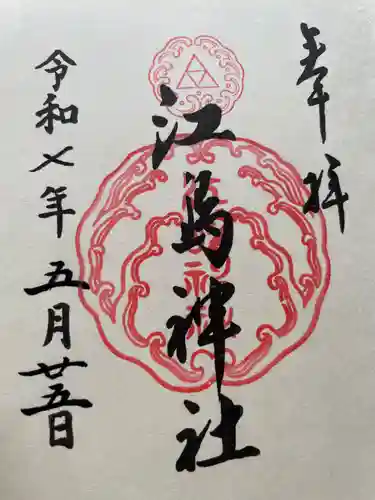 奉拝
江島神社
令和七年五月廿五日